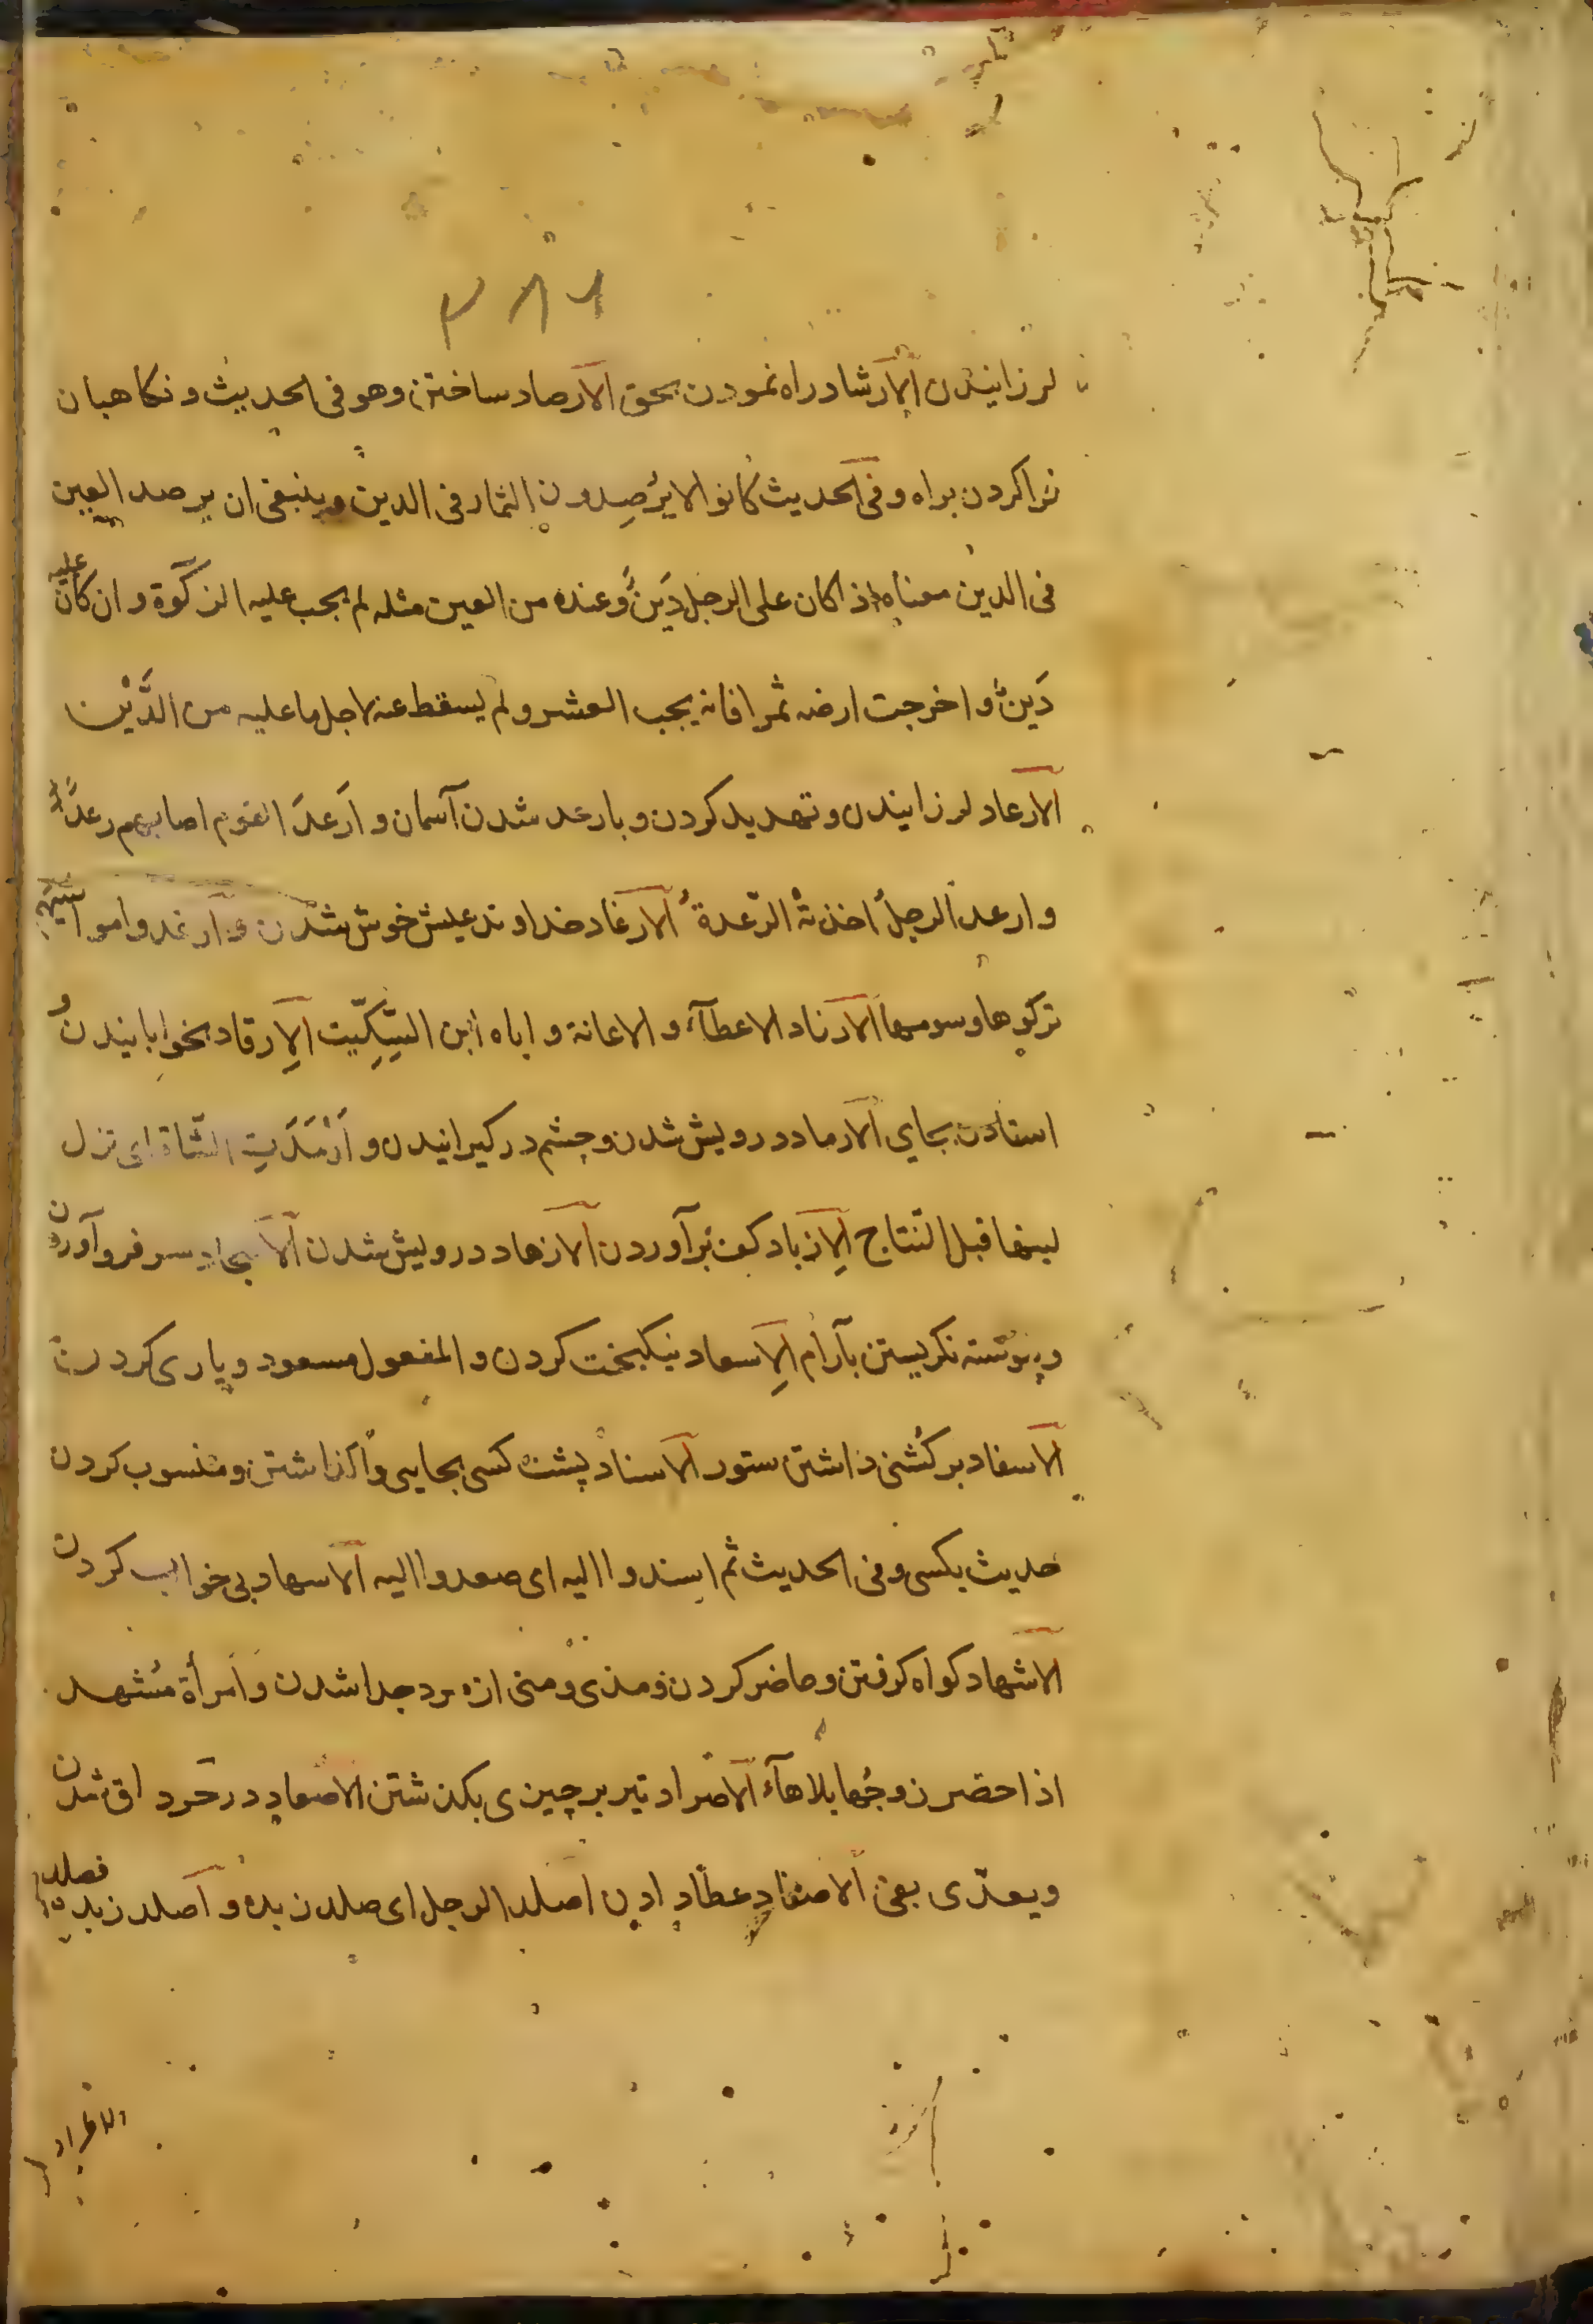 ٣٨٦
لرزانیدن الارشاد راه نمودن بحق الارصاد ساختن وهو فی الحدیث و نکاهبان
فرا کردن براه و فی الحدیث کانوا لا یُرصِدون الثمار فی الدین وینبغی ان یرصد العین
فی الدین معناه اذا کان علی الرجل دَینٌ وعنده من العین مثله لم یجب علیه الزکوة و ان کان علیه
دَینٌ و اخرجت ارضه ثمرا فانه یجب العشر و لم یسقط عنه لاجل ما علیه من الدَّیْن
الارعاد لرزانیدن و تهدید کردن و با رعد شدن آسمان و اَرعَدَ القوم اصابهم رعدٌ
و ارعد الرجلُ اخذته الرّعدة الارغاد خداوند عیش خوش شدن و ارغدوا مواشیهم
ترکوها و سومها الارفاد الاعطآء و الاعانة و اباه ابن السِّکِّیت الاِرقاد بخوابانیدن و
استادن بجای الارماد درویش شدن و چشم درد گیرانیدن و اَرْمَدَتِ الشاة ای نزل
لبنها قبل النّتاج الاِزباد کف برآوردن الازهاد درویش شدن الاسجاد سر فرو آوردن
و پیوسته نکریستن بآرام الاِسعاد نیکبخت کردن و المفعول مسعود و یاری کردن
الاسفاد بر کُشنی داشتن ستور الاسناد پشت کسی بجایی واکذاشتن و منسوب کردن
حدیث بکسی و فی الحدیث ثم اسندوا الیه ای صعدوا الیه الاسهاد بی خواب کردن
الاشهاد کواه کرفتن و حاضر کردن و مذی و منی از مرد جدا شدن و امرأة مُشهد
اذا حضر زوجُها بلا هآء الاصراد تیر بر چیزی بکذشتن الاصعاد در رفتن شدن
و یعدّی بفی الاصفاد عطا دادن اصلد الرجل ای صلد زنده و اصلد زنده فصلد
الاطراد